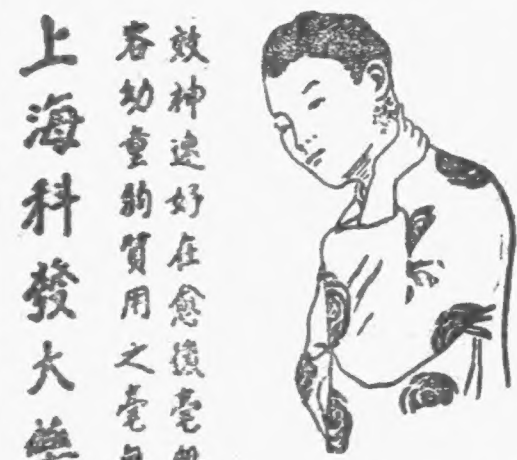 效神速好在愈後毫
容幼童夠質用之毫
上海科發大藥